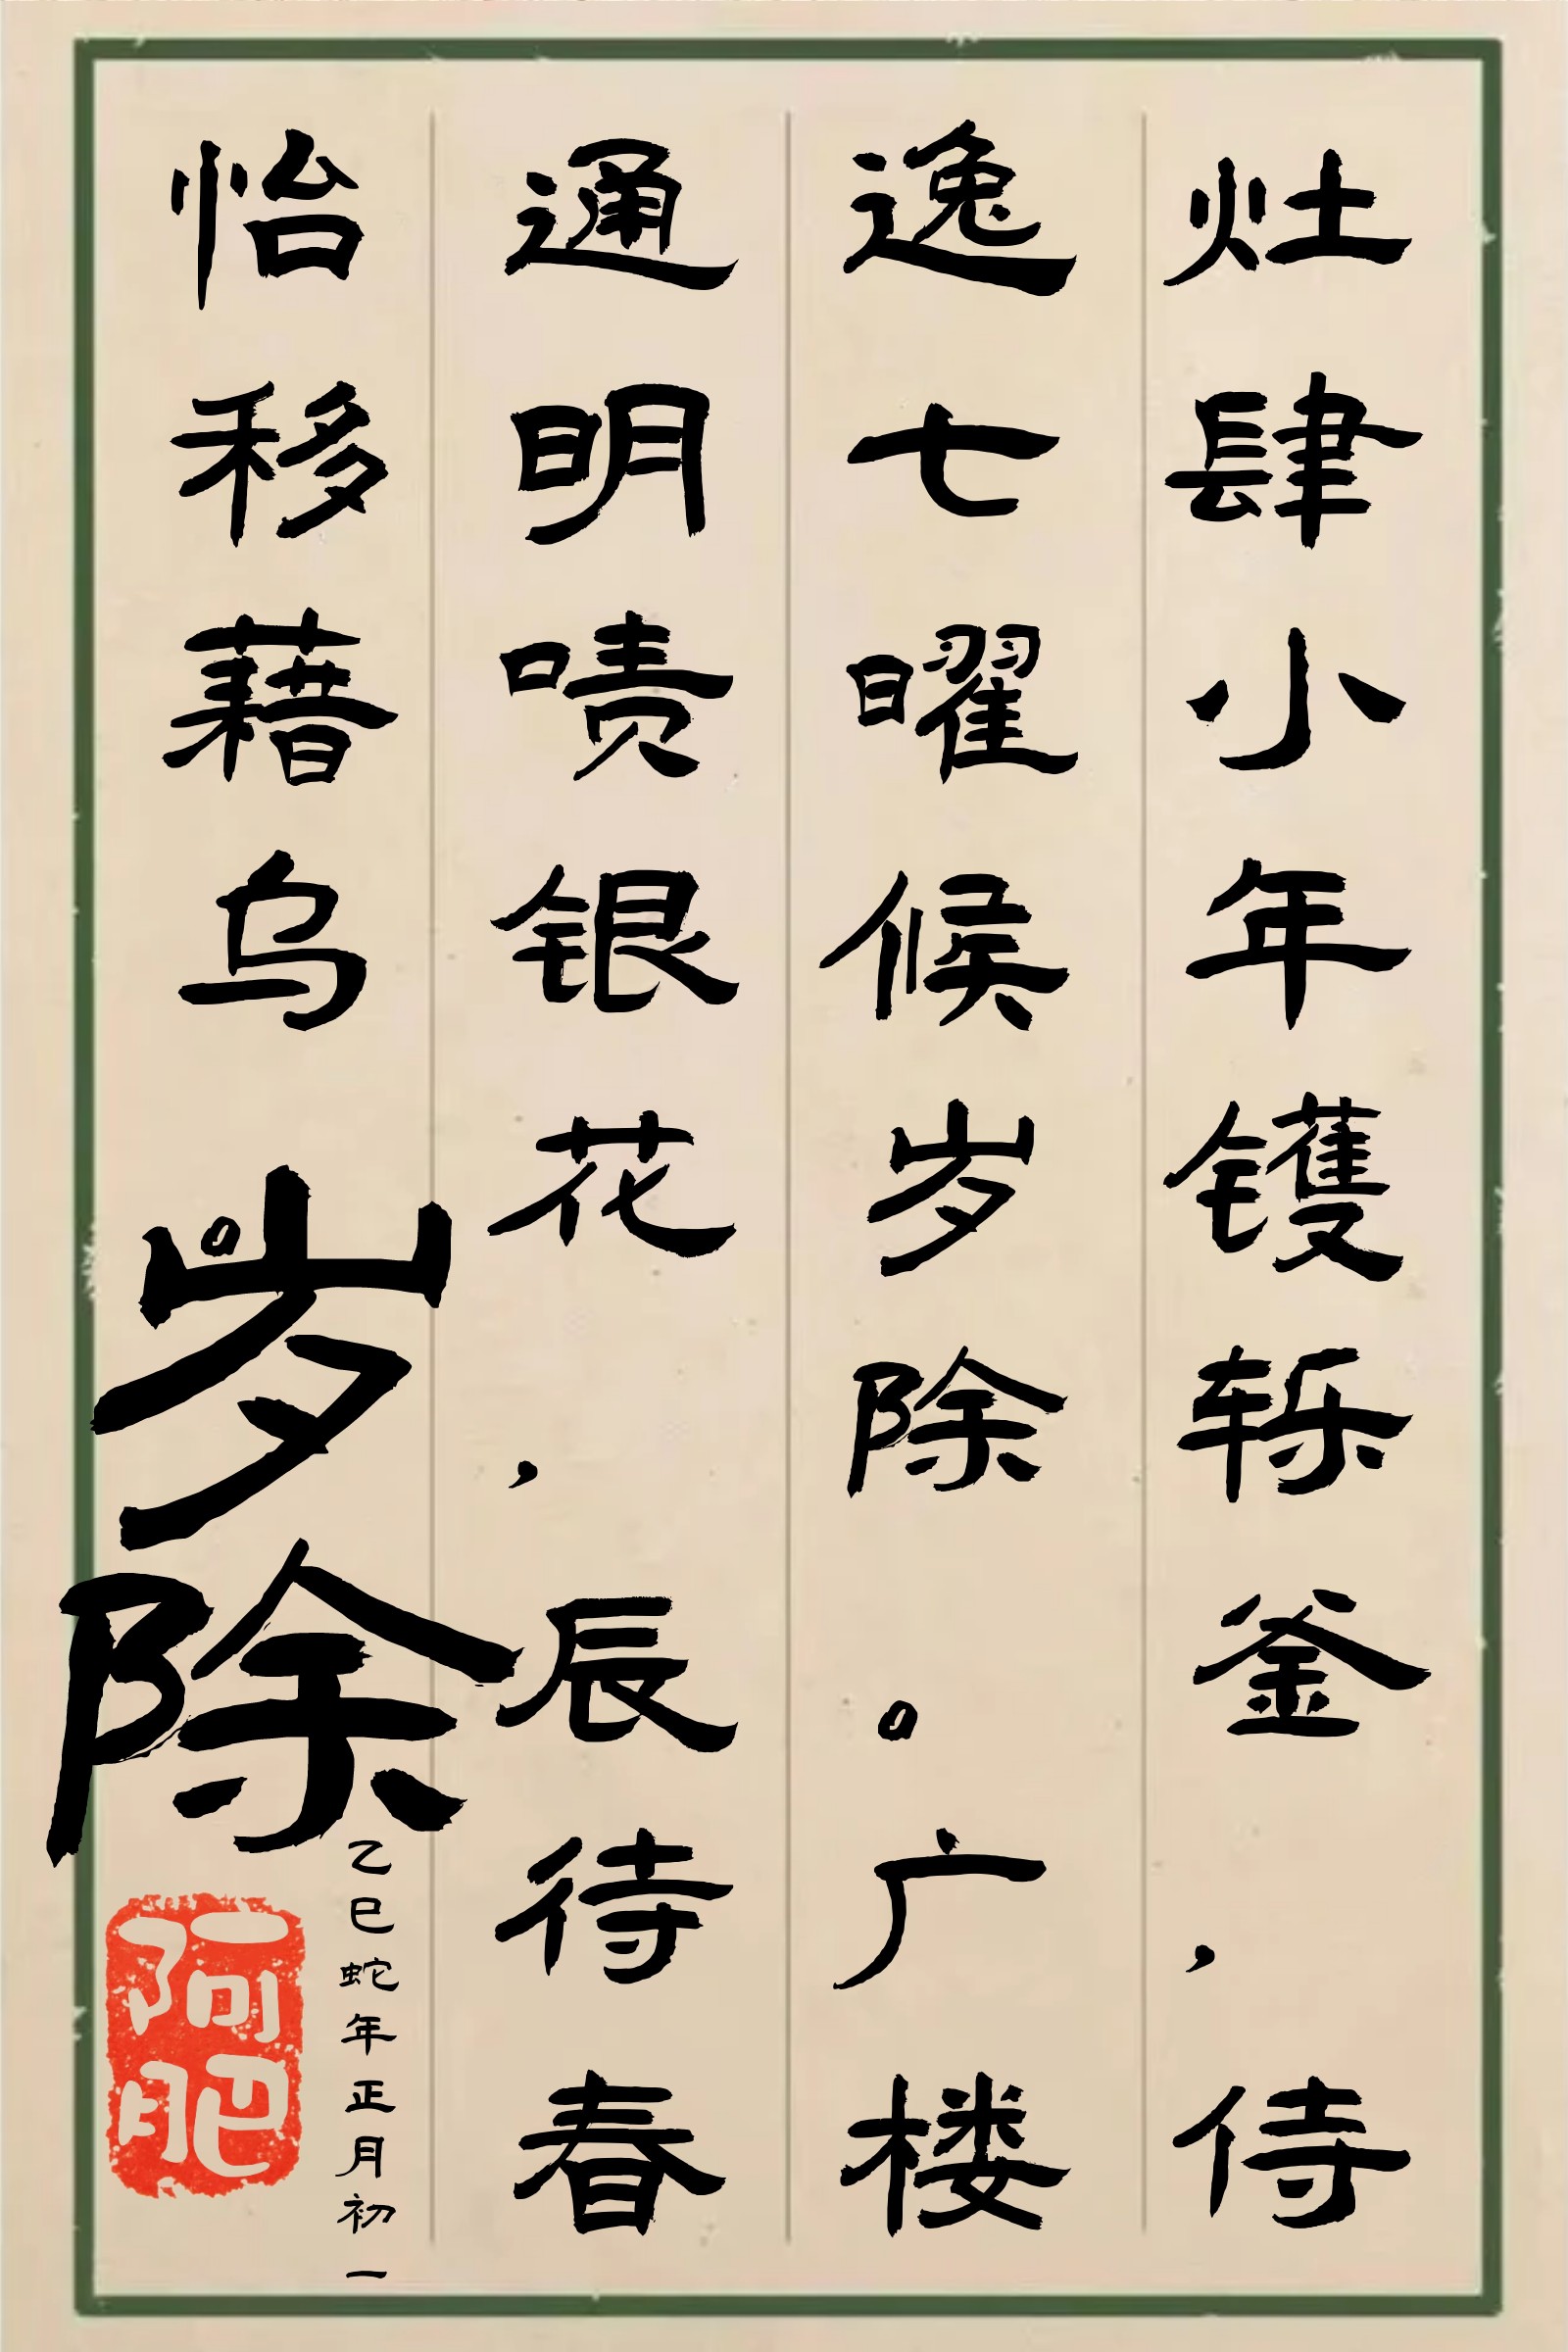 灶肆小年镬轹釜,侍
逸七曜候岁除。广楼
通明啧银花,辰待春
怡移藉乌。
岁除
乙巳蛇年正月初一
阿肥